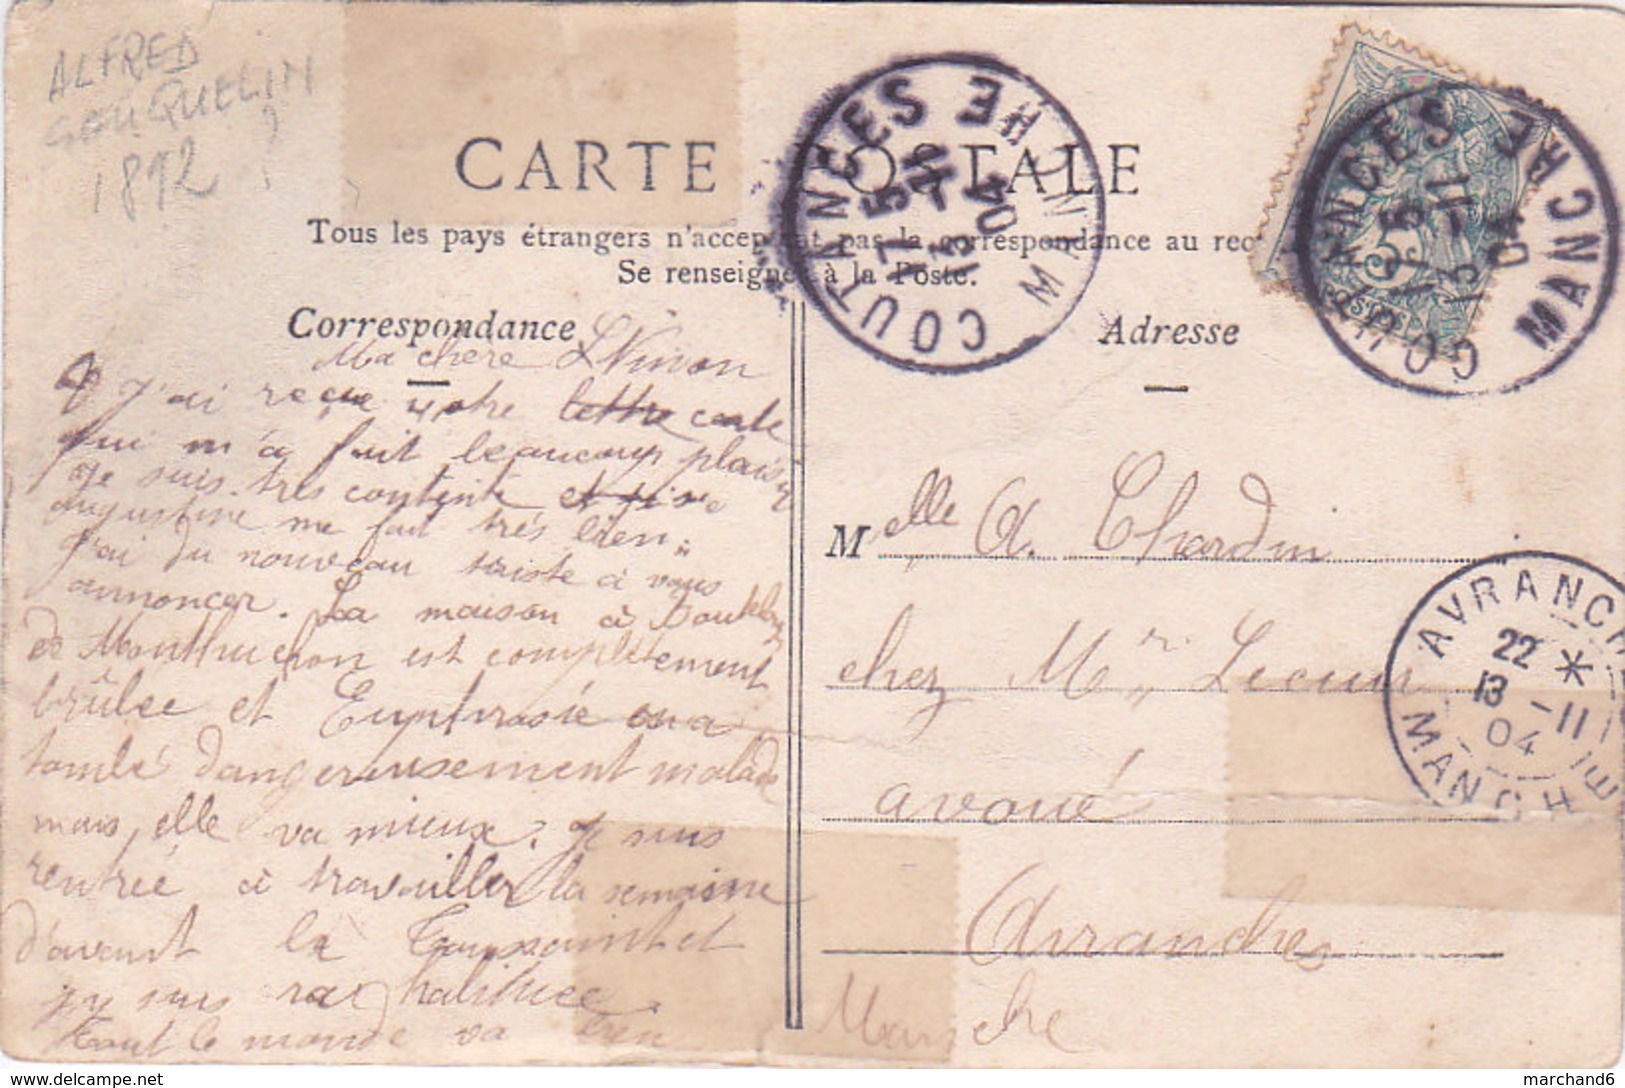 ALFRED
COUQUELIN
1892 ?
CARTE POSTALE
Tous les pays étrangers n'acceptent pas la correspondance au rec
Se renseigner à la Poste.
Correspondance
Adresse
COUTANCES MANCHE
17 5
13 -11
04
COUTANCES MANCHE
17 5
13 -11
04
AVRANCHES MANCHE
22 *
13 -11
04
Ma chère
J'ai reçue votre lettre carte
qui m'a fait beaucoup plaisir
Je suis très contente et
augustine me fait très bien
J'ai du nouveau triste à vous
annoncer. La maison à
de Monthuchon est complètement
brûlée et Euphrasie en a
tombé dangereusement malade
mais, elle va mieux. Je suis
rentrée à travailler la semaine
d'avent la Toussaint et
j'y suis habituée.
tout le monde va bien
Melle A. Chardin
chez Mr Lecuir
avoué
Avranches
Manche
marchand6